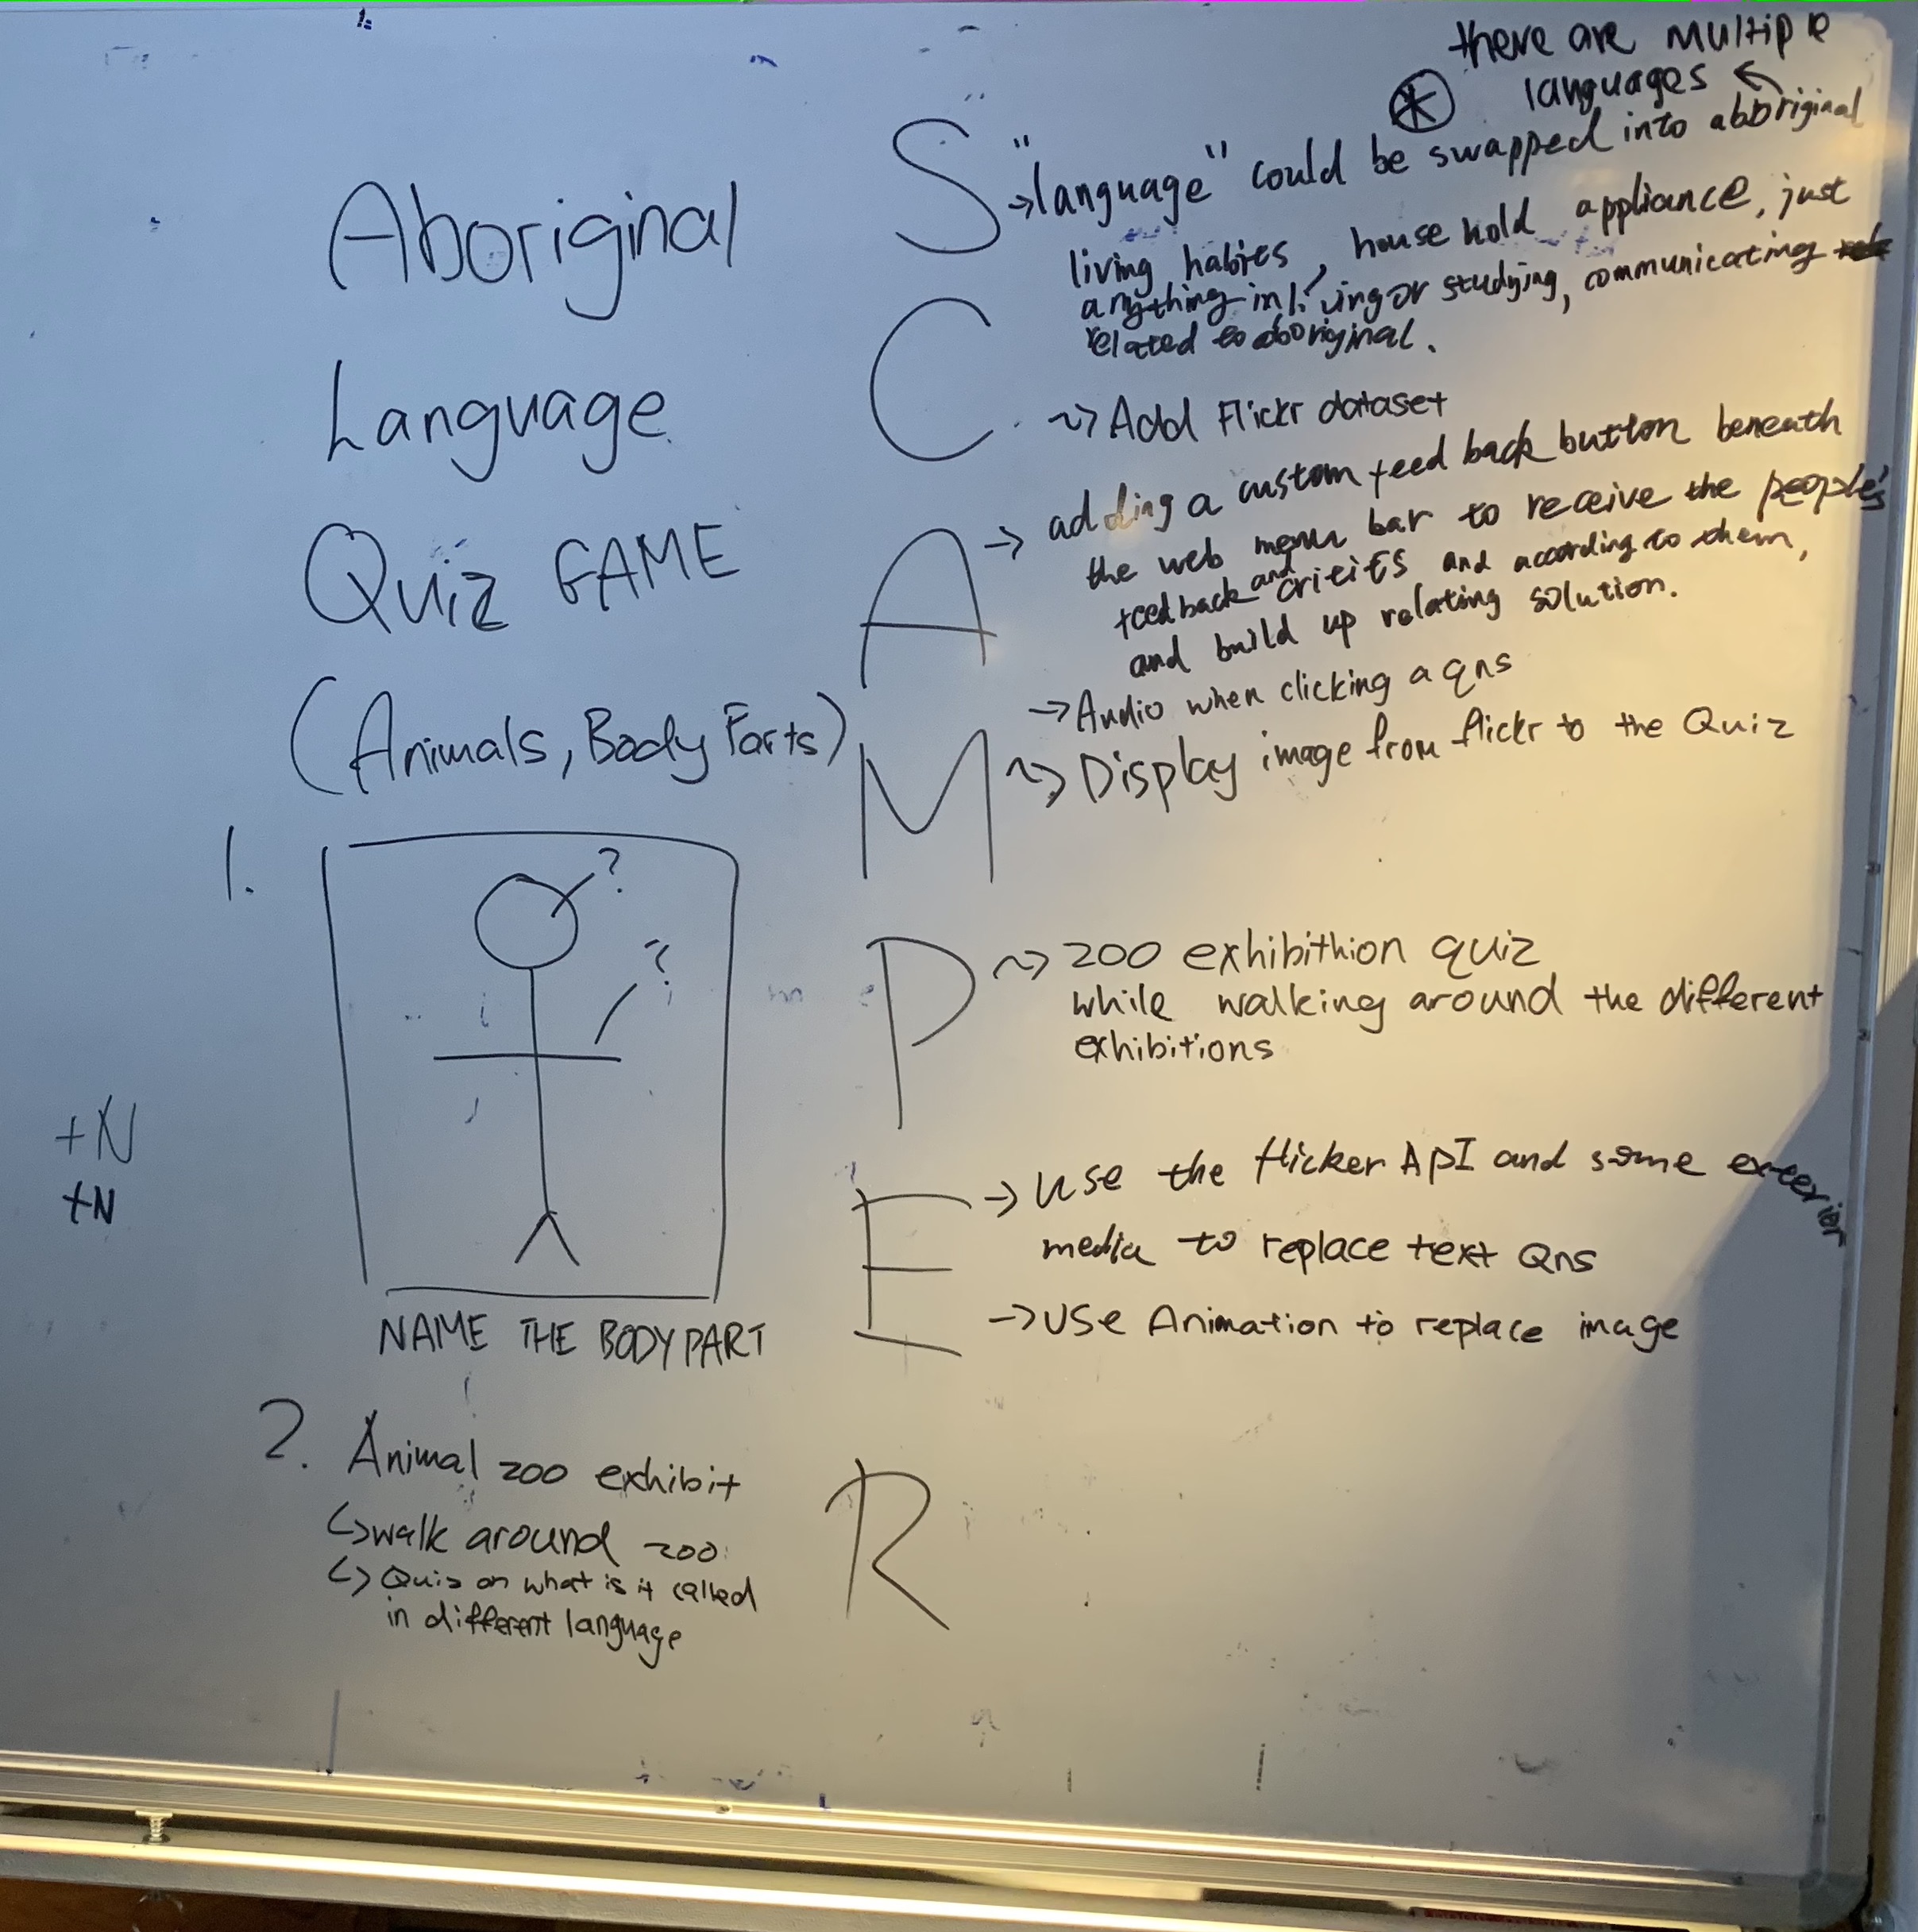 Aboriginal
Language
Quiz GAME
(Animals, Body Parts)
1.
?
?
NAME THE BODY PART
+N
+N
2. Animal zoo exhibit
↳ walk around zoo
↳ Quiz on what is it called
in different language
there are multiple
languages
*
S → "language" could be swapped into abboriginal
living habits, house hold appliance, just
anything in living or studying, communicating
related to aboriginal.
C ~> Add Flickr dataset
A → adding a custom feed back button beneath
the web menu bar to receive the people's
feedback and critics and according to them,
and build up relating solution.
M → Audio when clicking a qns
~> Display image from flickr to the Quiz
P ~> zoo exhibithion quiz
while walking around the different
exhibitions
E → Use the flicker API and some exterior
media to replace text Qns
→ Use Animation to replace image
R